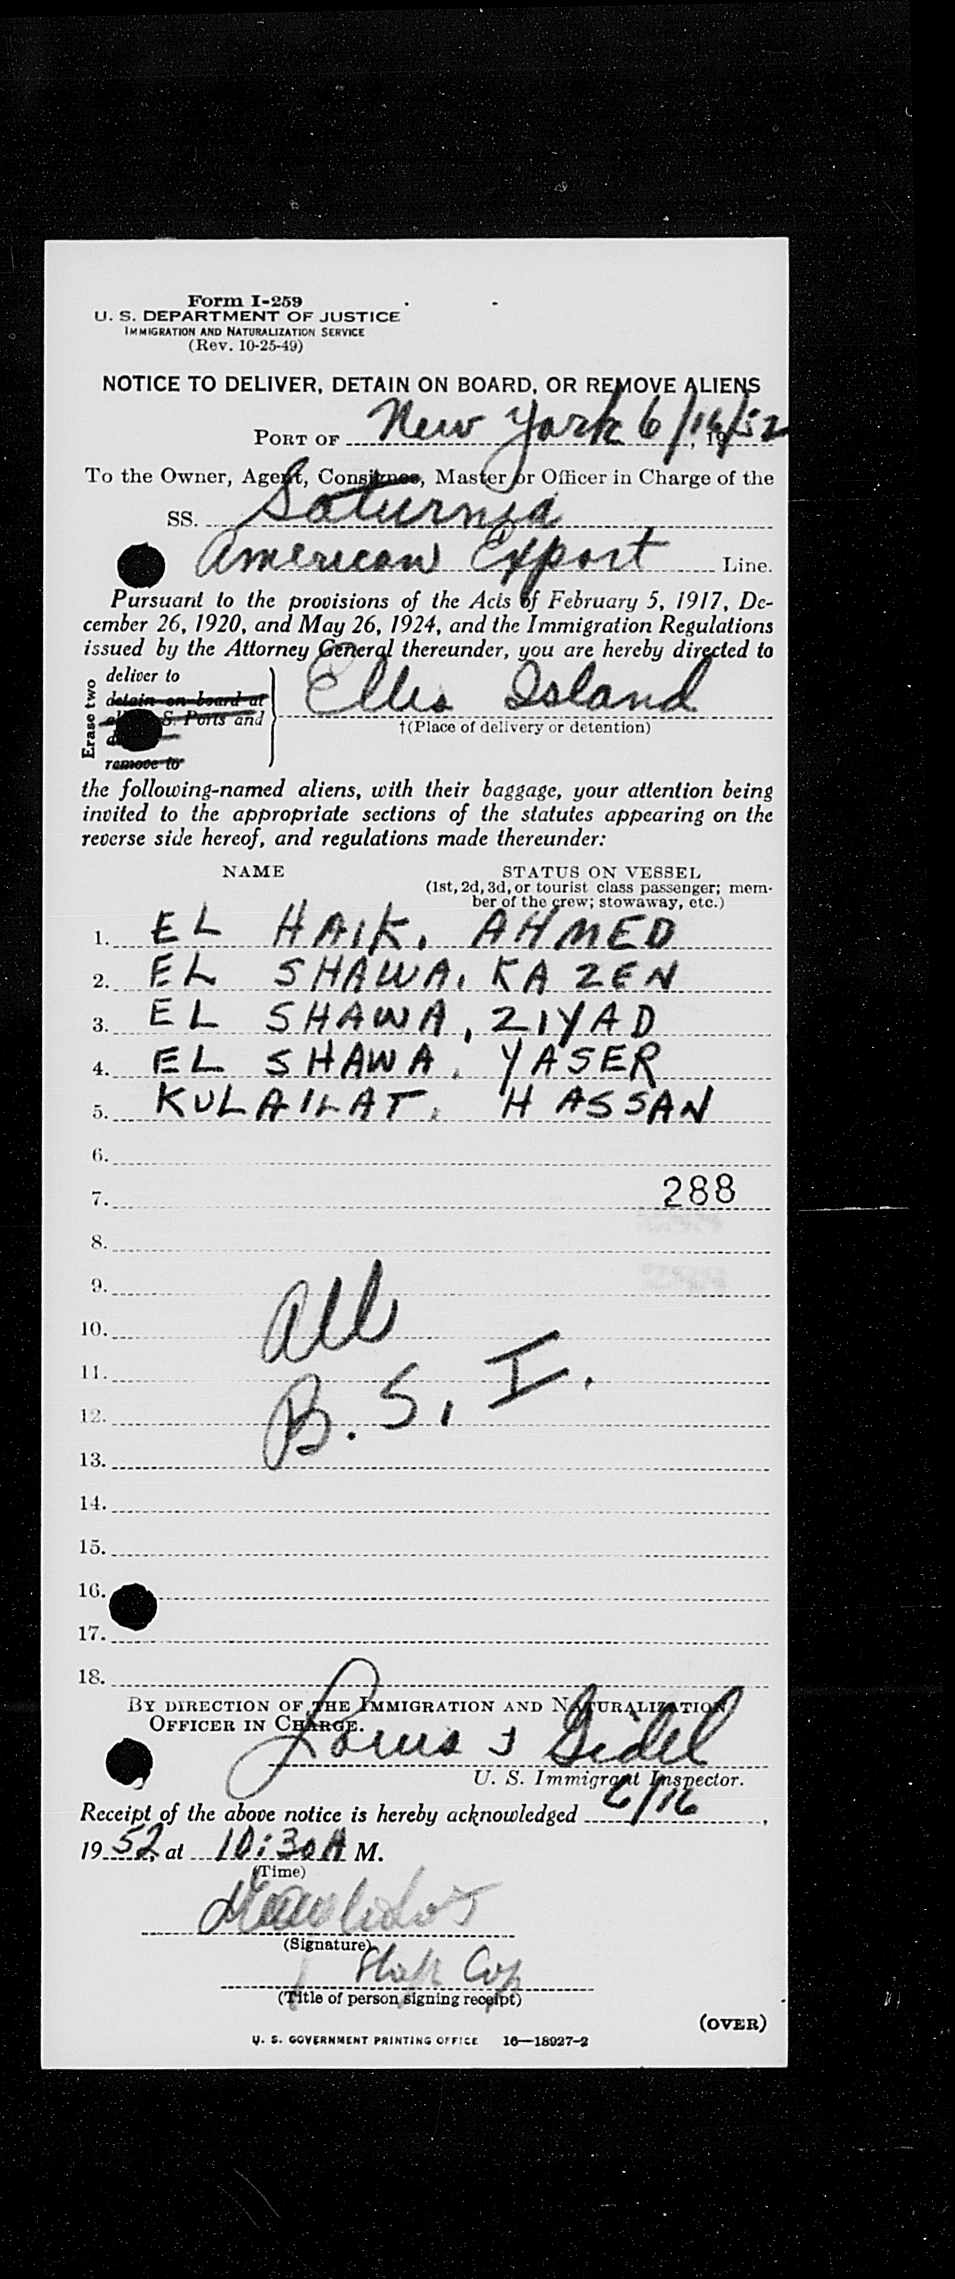 Form I-259
U. S. DEPARTMENT OF JUSTICE
IMMIGRATION AND NATURALIZATION SERVICE
(Rev. 10-25-49)
NOTICE TO DELIVER, DETAIN ON BOARD, OR REMOVE ALIENS
PORT OF New York 6/16/52, 19
To the Owner, Agent, Consignee, Master or Officer in Charge of the
SS. Saturnia
American Export Line.
Pursuant to the provisions of the Acts of February 5, 1917, De-
cember 26, 1920, and May 26, 1924, and the Immigration Regulations
issued by the Attorney General thereunder, you are hereby directed to
Erase two
deliver to
detain on board at
S. Ports and
remove to
Ellis Island
†(Place of delivery or detention)
the following-named aliens, with their baggage, your attention being
invited to the appropriate sections of the statutes appearing on the
reverse side hereof, and regulations made thereunder:
NAME STATUS ON VESSEL
(1st, 2d, 3d, or tourist class passenger; mem-
ber of the crew; stowaway, etc.)
1. EL HAIK, AHMED
2. EL SHAWA, KAZEN
3. EL SHAWA, ZIYAD
4. EL SHAWA, YASER
5. KULAILAT, HASSAN
6.
7. 288
8.
9.
10. All
11.
12. B. S. I.
13.
14.
15.
16.
17.
18.
BY DIRECTION OF THE IMMIGRATION AND NATURALIZATION
OFFICER IN CHARGE.
Louis J Gidel
U. S. Immigrant Inspector.
Receipt of the above notice is hereby acknowledged 6/16,
1952, at 10:30 A M.
(Time)
(Signature)
(Title of person signing receipt)
(OVER)
U. S. GOVERNMENT PRINTING OFFICE 16—18927-2